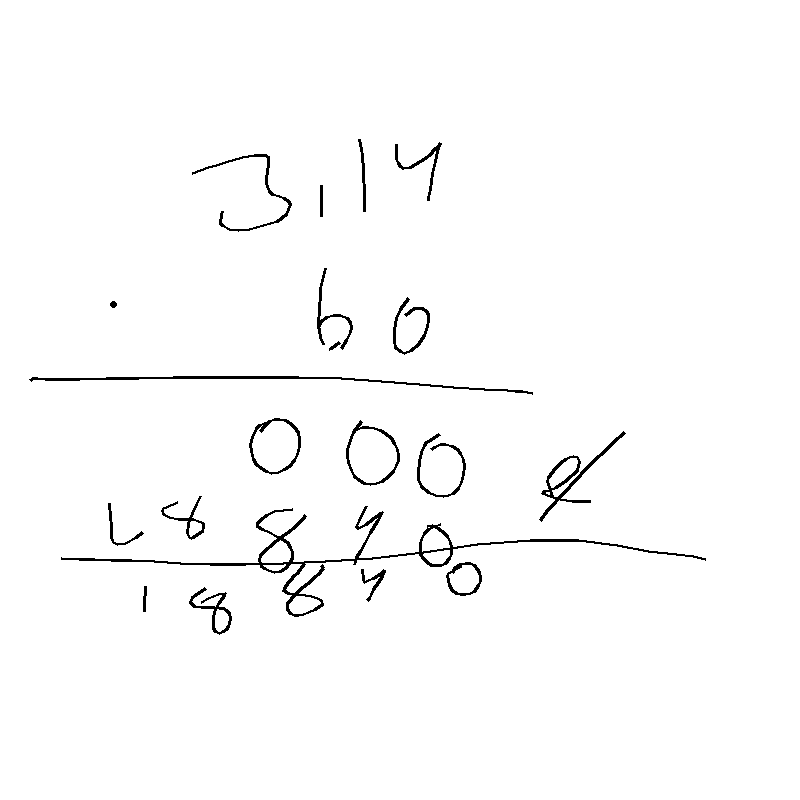 3,14
. 60
000
18840
18840